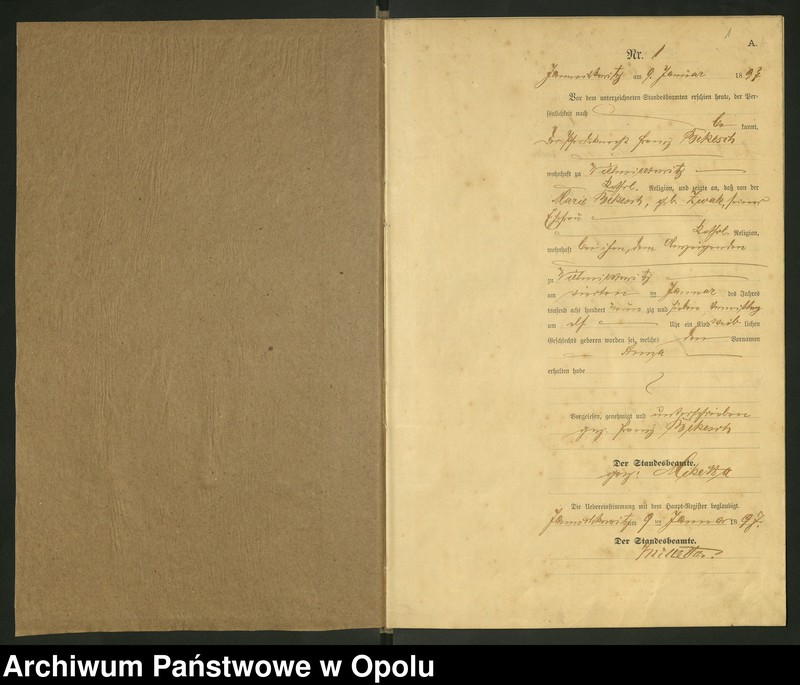 1
A.
Nr. 1
am 9. Januar 1897.
Vor dem unterzeichneten Standesbeamten erschien heute, der Per-
sönlichkeit nach
be kannt,
der Pferdeknecht Franz Bekesch
wohnhaft zu
kathol. Religion, und zeigte an, daß von der
Marie Bekesch, geb. Zwak, seiner
Ehefrau
kathol. Religion,
wohnhaft bei ihm, dem Anzeigenden
zu
am vierten ten Januar des Jahres
tausend acht hundert neun zig und sieben Vormittag
um elf Uhr ein Kind weib lichen
Geschlechts geboren worden sei, welches den Vornamen
Anna
erhalten habe
Vorgelesen, genehmigt und unterschrieben
gez. Franz Bekesch
Der Standesbeamte.
gez. Miketta
Die Uebereinstimmung mit dem Haupt-Register beglaubigt.
am 9 ten Januar 1897.
Der Standesbeamte.
Miketta.
Archiwum Państwowe w Opolu